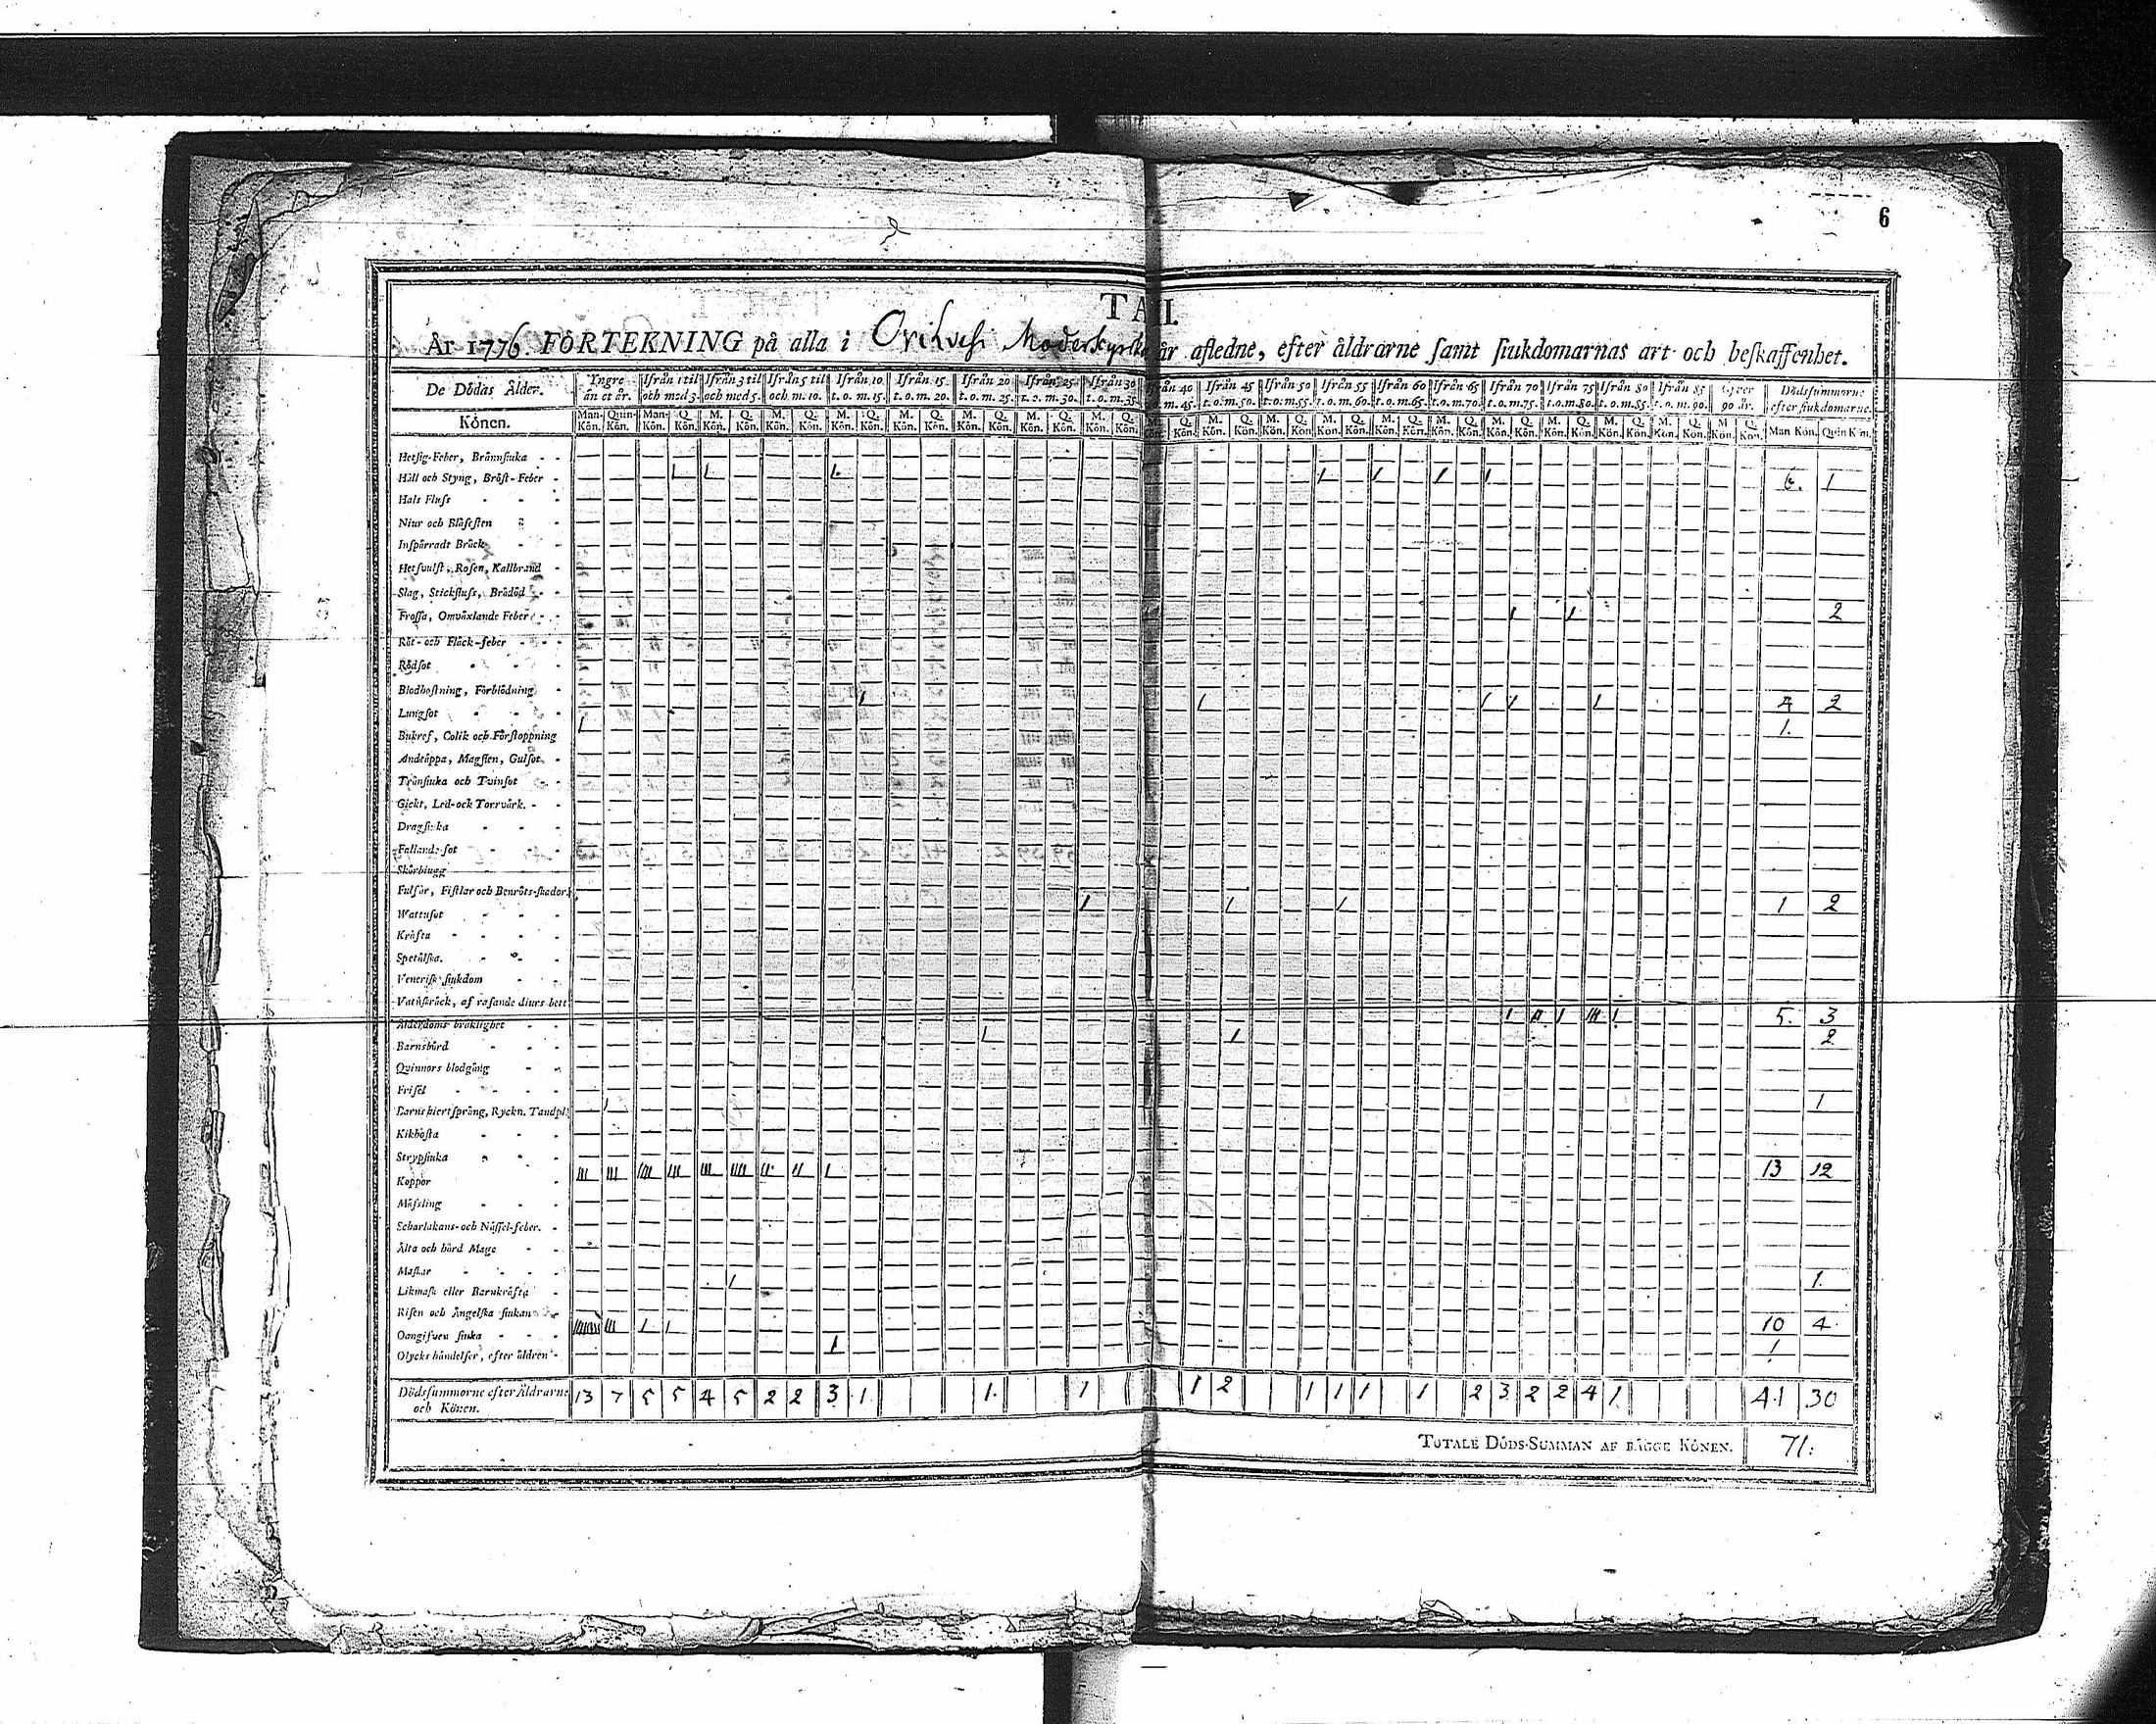 6
TAI.
År 1776. FÖRTEKNING på alla i Orihvesi Moderkyrka år afledne, efter åldrarne samt siukdomarnas art och beskaffenhet.
De Dödas Ålder. Yngre än et år. Ifrån 1 til och med 3. Ifrån 3 til och med 5. Ifrån 5 til och m. 10. Ifrån 10 t. o. m. 15. Ifrån 15 t. o. m. 20. Ifrån 20 t. o. m. 25. Ifrån 25 t. o. m. 30. Ifrån 30 t. o. m. 35. Ifrån 40 o. m. 45. Ifrån 45 t. o. m. 50. Ifrån 50 t. o. m. 55. Ifrån 55 t. o. m. 60. Ifrån 60 t. o. m. 65. Ifrån 65 t. o. m. 70. Ifrån 70 t. o. m. 75. Ifrån 75 t. o. m. 80. Ifrån 80 t. o. m. 85. Ifrån 85 t. o. m. 90. Öfver 90 år. Dödssummorne efter siukdomarne.
Könen. Man-Kön. Quin-Kön. Man-Kön. Q. Kön. M. Kön. Q. Kön. M. Kön. Q. Kön. Man Kön. Quin Kön.
Hetsig-Feber, Brännsiuka
Håll och Styng, Bröst-Feber 1 1 1. 1 1 1 1 6. 1
Hals Fluss
Niur och Blåsesten
Inspärradt Bråck
Hetsvulst, Rosen, Kallbrand
Slag, Stickfluss, Brådöd
Frossa, Omväxlande Feber 1 1 2
Röt- och Fläck-feber
Rödsot
Blodhostning, Förblödning
Lungsot 1 1 1 1 1 4 2
Bukref, Colik och Förstoppning 1 1.
Andtäppa, Magsten, Gulsot
Trånsiuka och Tvinsot
Gickt, Led- och Torrvärk.
Dragsiuka
Fallande-sot
Skörbiugg
Fulsår, Fistlar och Benröts-skador
Wattusot 1 1 1 1 2
Kräfta
Spetälska.
Venerisk siukdom
Vatuskräck, af rasande diurs bett
Ålderdoms bräklighet 1 11. 1 111 1 5. 3
Barnsbörd 1 1 2
Quinnors blodgång
Frisel
Barns hiertsprång, Ryckn. Tandpl. 1 1
Kikhosta
Strypsiuka
Koppor 13 12
Mässling
Scharlakans- och Nässel-feber.
Älta och hård Mage
Maskar
Likmask eller Barnkräfta 1 1.
Risen och Ängelska siukan
Oangifven siuka 1 1 10 4.
Olycks händelser, efter åldren 1 1
Dödssummorne efter Åldrarne och Könen. 13 7 5 5 4 5 2 2 3 1 1. 1 1 2 1 1 1 1 2 3 2 2 4 1 41 30
TOTALE DÖDS-SUMMAN AF BÄGGE KÖNEN. 71.